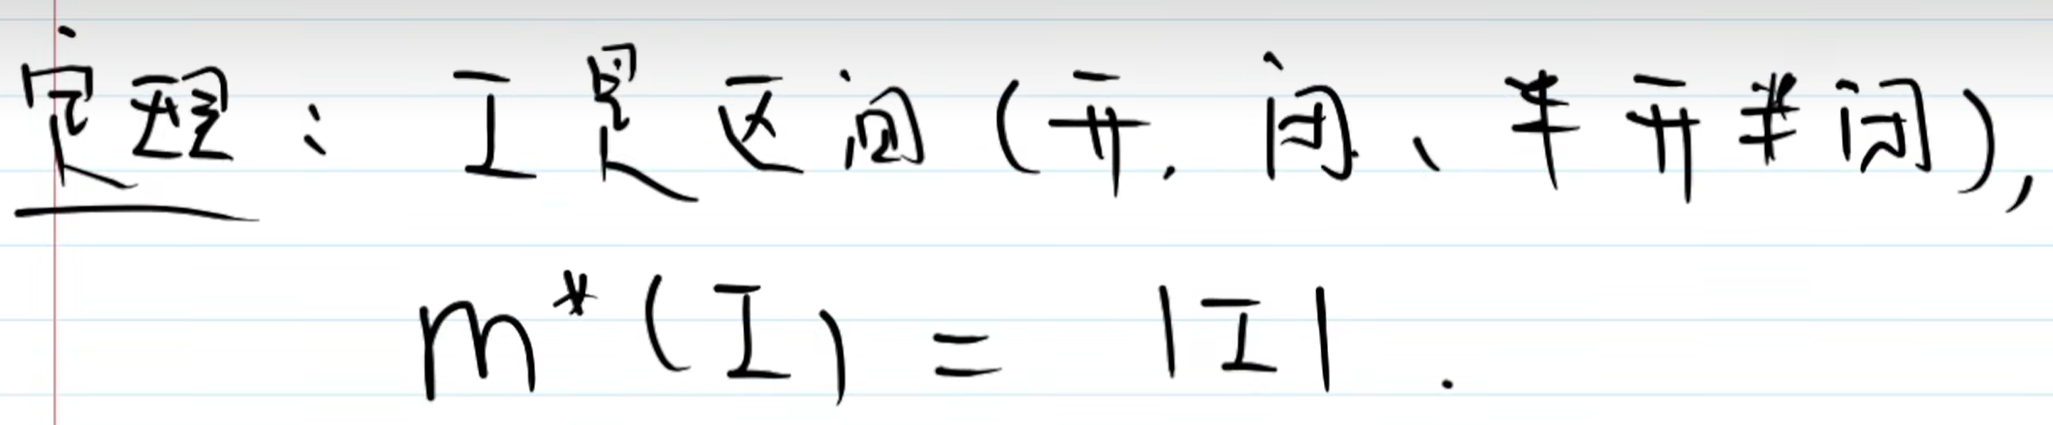 定理：I是区间(开,闭、半开半闭),
m*(I) = |I|.